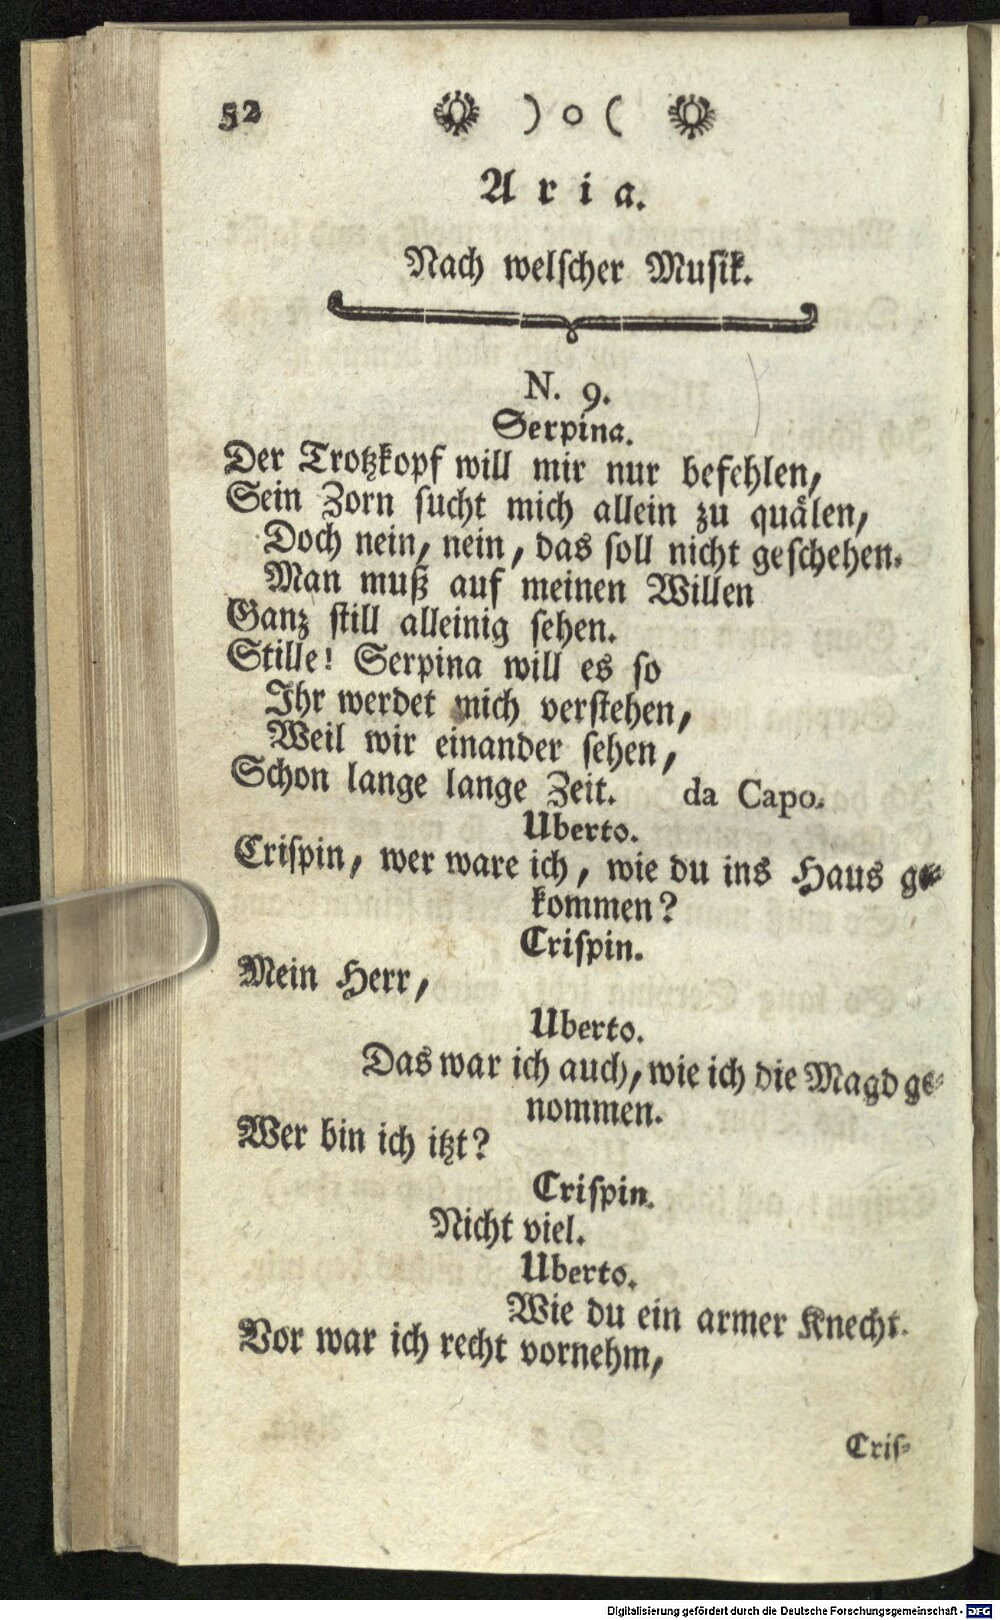 52 ) o (
Aria.
Nach welscher Musik.
N. 9.
Serpina.
Der Trotzkopf will mir nur befehlen,
Sein Zorn sucht mich allein zu quälen,
Doch nein, nein, das soll nicht geschehen.
Man muß auf meinen Willen
Ganz still alleinig sehen.
Stille! Serpina will es so
Ihr werdet mich verstehen,
Weil wir einander sehen,
Schon lange lange Zeit. da Capo.
Uberto.
Crispin, wer ware ich, wie du ins Haus ge-
kommen?
Crispin.
Mein Herr,
Uberto.
Das war ich auch, wie ich die Magd ge-
nommen.
Wer bin ich itzt?
Crispin.
Nicht viel.
Uberto.
Wie du ein armer Knecht.
Vor war ich recht vornehm,
Cris-
Digitalisierung gefördert durch die Deutsche Forschungsgemeinschaft - DFG